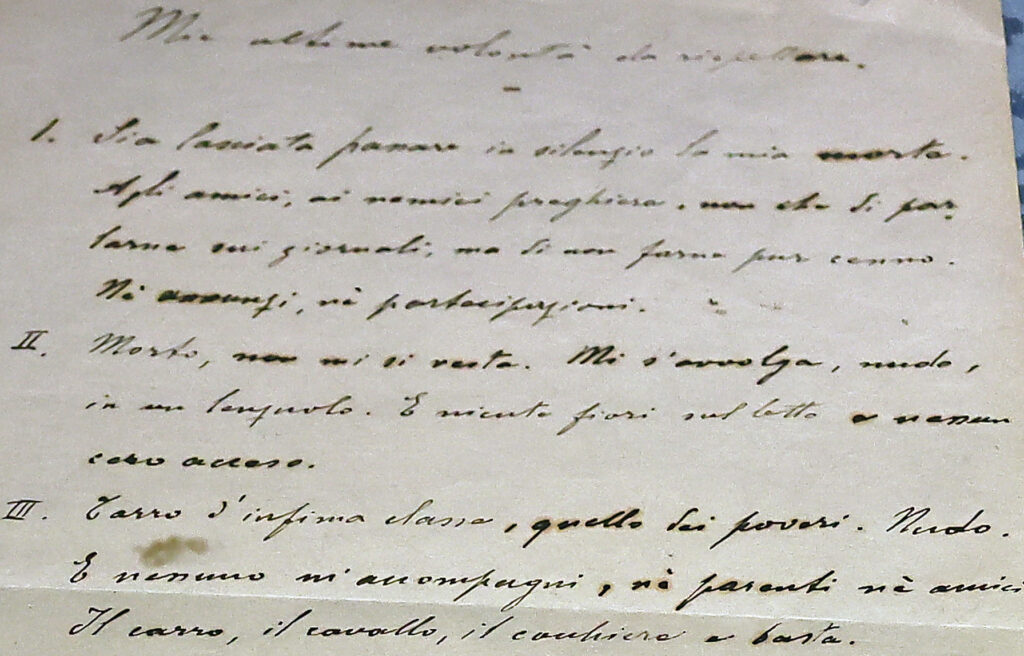 Mie ultime volontà da rispettare.
I. Sia lasciata passare in silenzio la mia morte.
Agli amici, ai nemici preghiera, non che di par-
larne sui giornali, ma di non farne pur cenno.
Nè annunzi, nè partecipazioni.
II. Morto, non mi si vesta. Mi s'avvolga, nudo,
in un lenzuolo. E niente fiori sul letto e nessun
cero acceso.
III. Carro d'infima classe, quello dei poveri. Nudo.
E nessuno m'accompagni, nè parenti nè amici
Il carro, il cavallo, il cocchiere e basta.